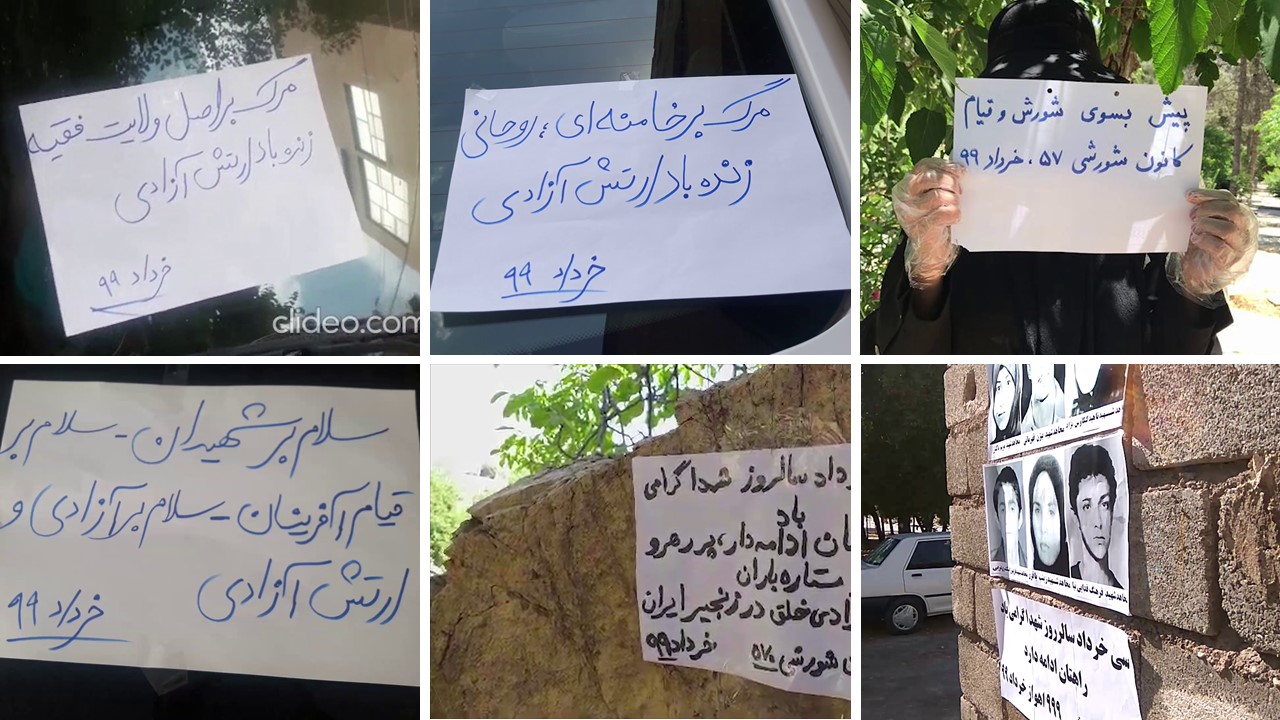 مرگ بر اصل ولایت فقیه
زنده باد ارتش آزادی
خرداد ۹۹
clideo.com
مرگ بر خامنه‌ای، روحانی
زنده باد ارتش آزادی
خرداد ۹۹
پیش بسوی شورش و قیام
کانون شورشی ۵۷۰ خرداد ۹۹
سلام بر شهیدان - سلام بر
قیام آفرینان - سلام بر آزادی و
ارتش آزادی
خرداد ۹۹
داد سالروز شهدا گرامی
باد
ان ادامه‌دار، پر رهرو
ستاره‌باران
ادی خلق در زنجیر ایران
شورشی ۵۷۰ خرداد ۹۹
مجاهد شهید
مجاهد شهید فرهنگ فدایی نیا مجاهد شهید زینب
سی خرداد سالروز شهدا گرامی باد
راهتان ادامه دارد
۹۹۹ اهواز خرداد ۹۹